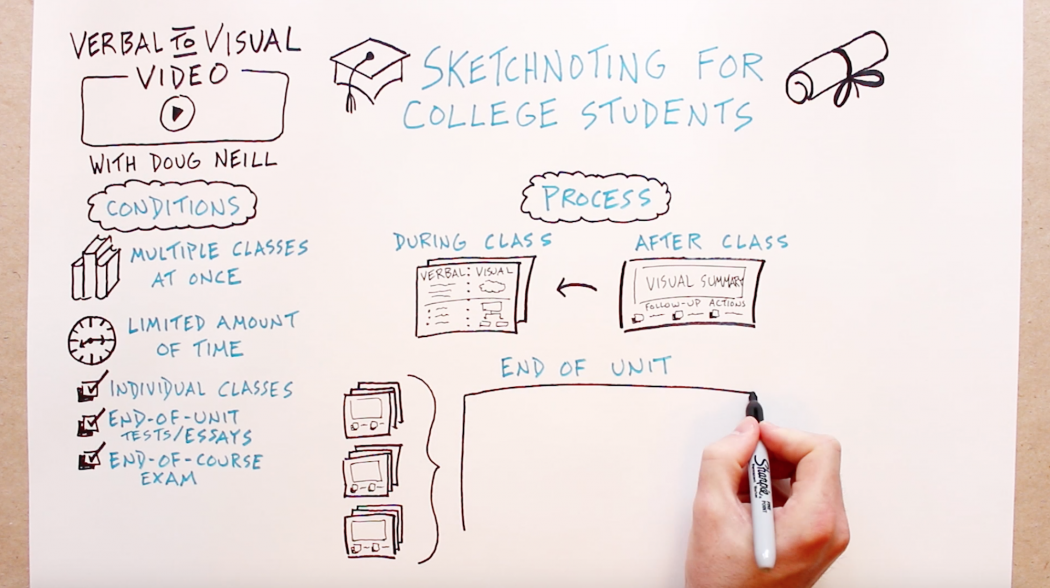 VERBAL TO VISUAL
VIDEO
WITH DOUG NEILL
SKETCHNOTING FOR
COLLEGE STUDENTS
CONDITIONS
MULTIPLE CLASSES
AT ONCE
LIMITED AMOUNT
OF TIME
INDIVIDUAL CLASSES
END-OF-UNIT
TESTS/ESSAYS
END-OF-COURSE
EXAM
PROCESS
DURING CLASS
VERBAL: VISUAL
AFTER CLASS
VISUAL SUMMARY
FOLLOW-UP ACTIONS
END OF UNIT
Sharpie